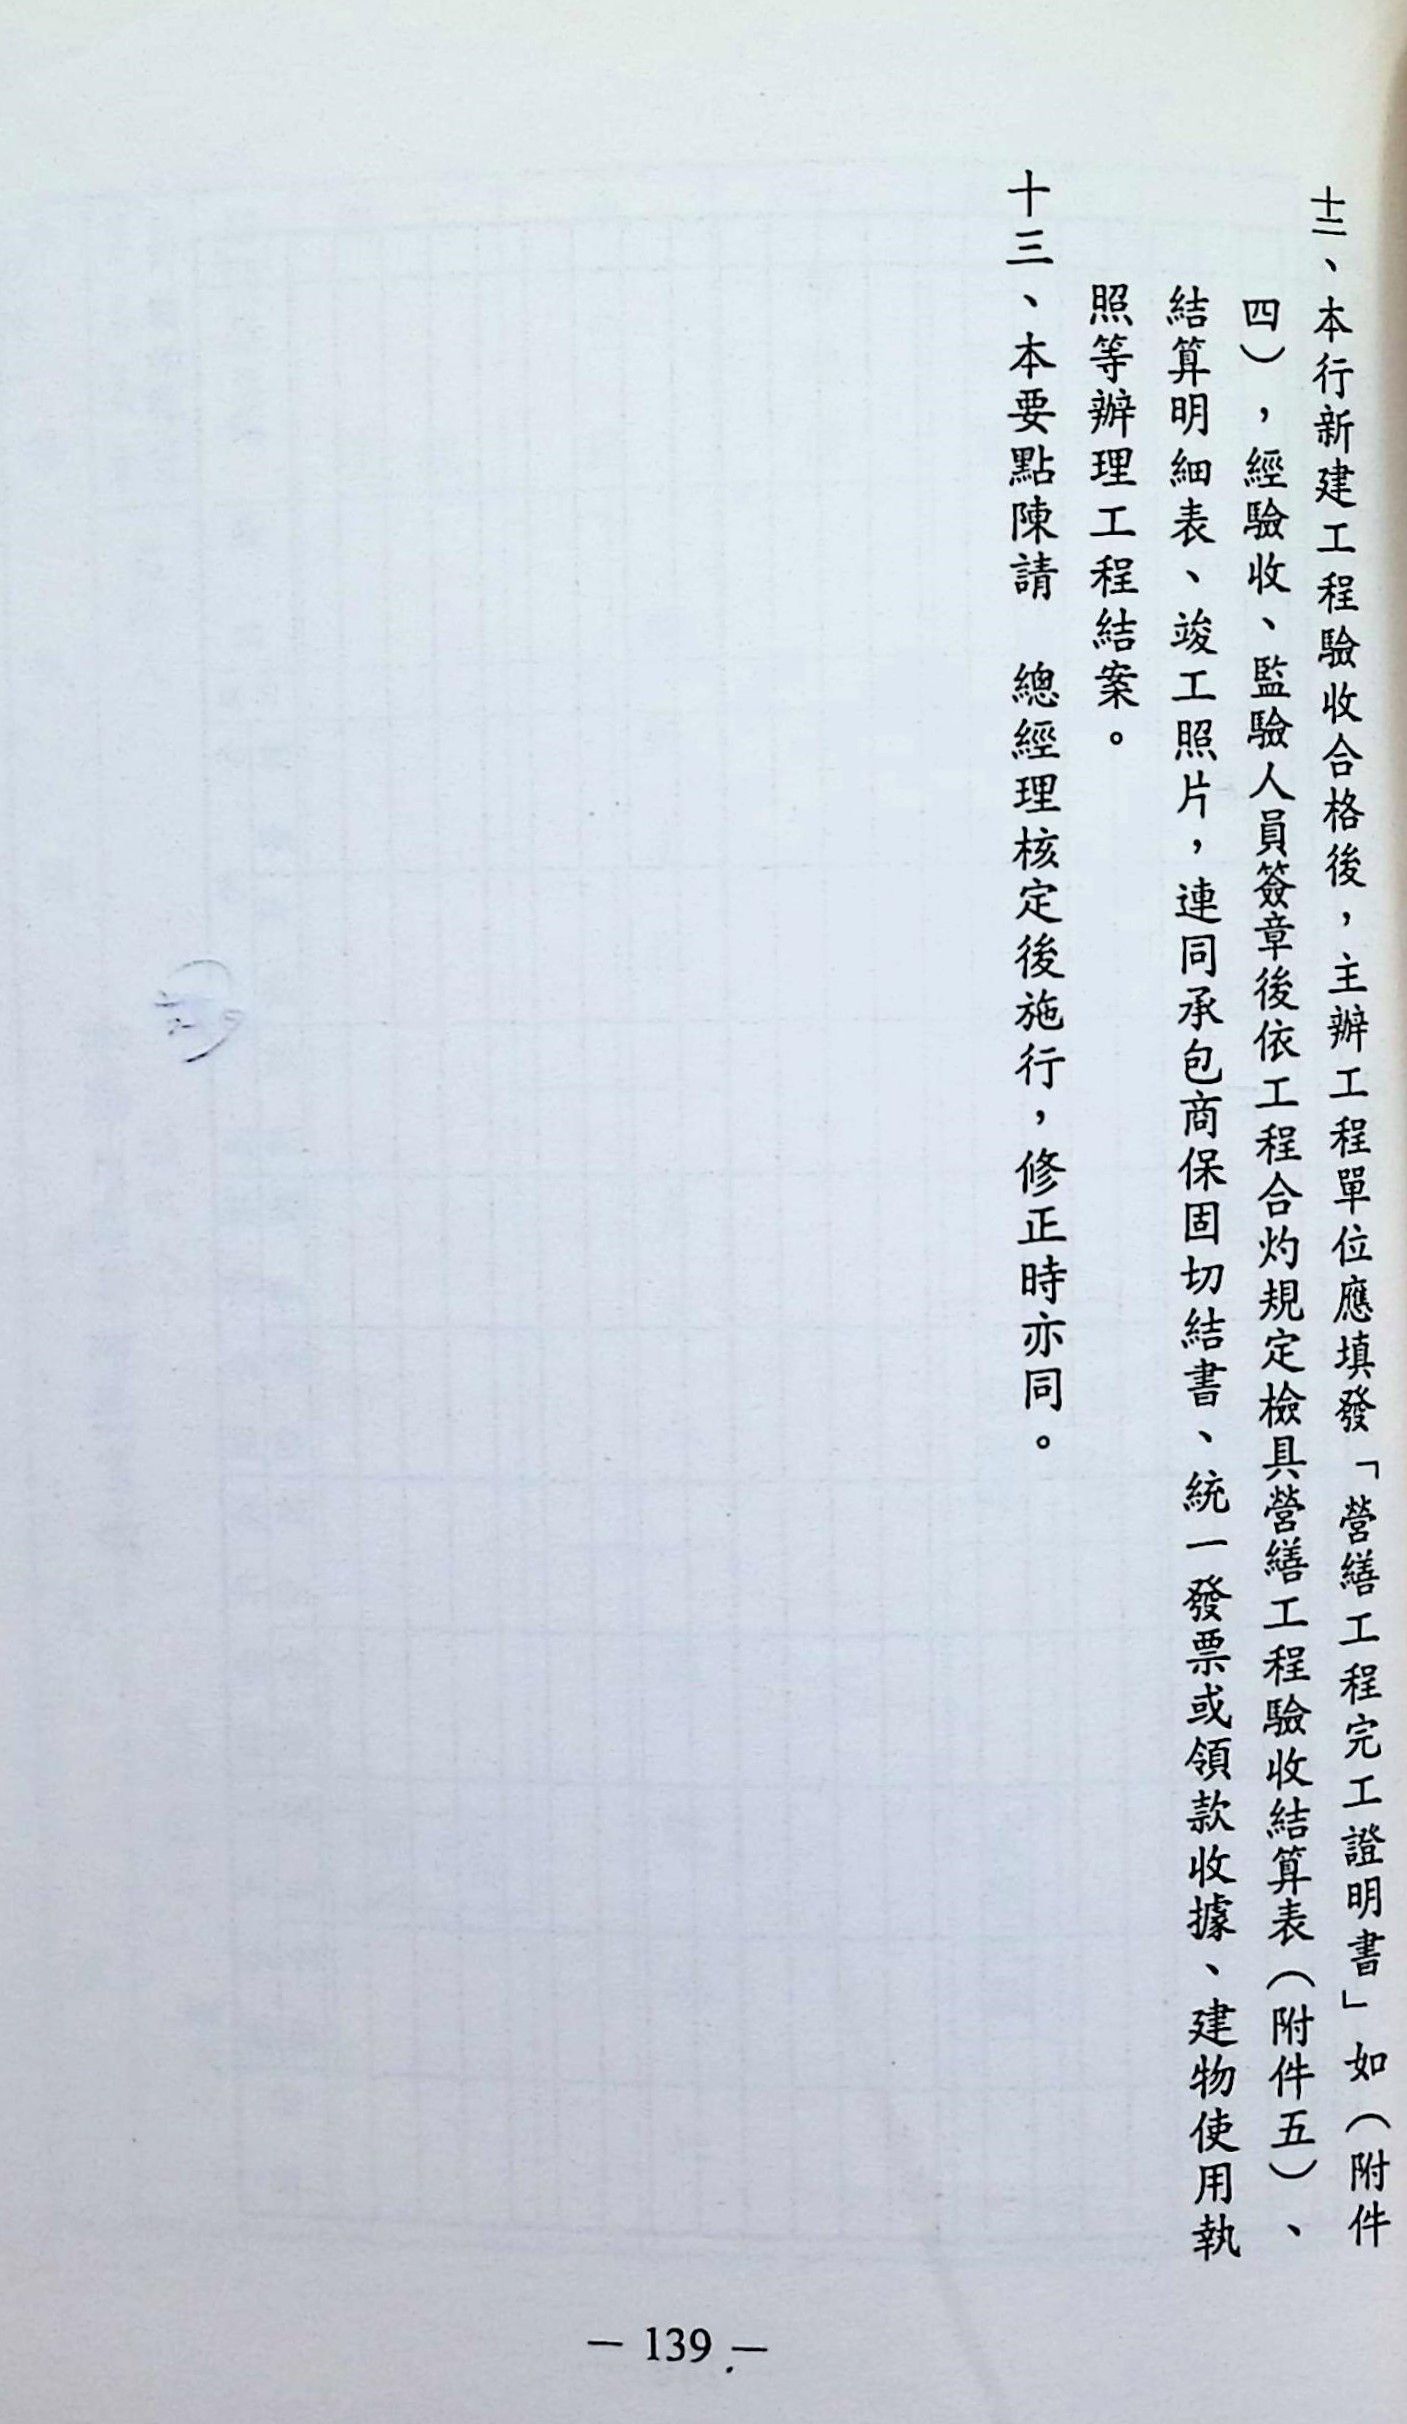 十二、本行新建工程驗收合格後，主辦工程單位應填發「營繕工程完工證明書」如（附件
四），經驗收、監驗人員簽章後依工程合灼規定檢具營繕工程驗收結算表（附件五）、
結算明細表、竣工照片，連同承包商保固切結書、統一發票或領款收據、建物使用執
照等辦理工程結案。
十三、本要點陳請　總經理核定後施行，修正時亦同。
— 139 —